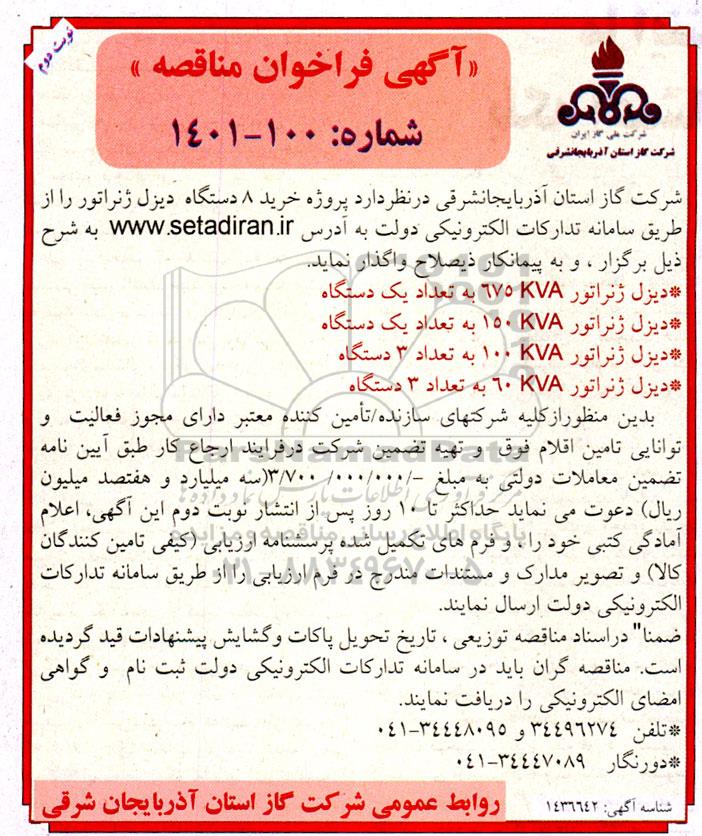 نوبت دوم
«آگهی فراخوان مناقصه»
شماره: ۱۰۰-۱٤۰۱
شرکت ملی گاز ایران
شرکت گاز استان آذربایجانشرقی
شرکت گاز استان آذربایجانشرقی درنظردارد پروژه خرید ۸ دستگاه دیزل ژنراتور را از
طریق سامانه تدارکات الکترونیکی دولت به آدرس www.setadiran.ir به شرح
ذیل برگزار ، و به پیمانکار ذیصلاح واگذار نماید.
*دیزل ژنراتور ٦۷۵ KVA به تعداد یک دستگاه
*دیزل ژنراتور ۱۵۰ KVA به تعداد یک دستگاه
*دیزل ژنراتور ۱۰۰ KVA به تعداد ۳ دستگاه
*دیزل ژنراتور ٦۰ KVA به تعداد ۳ دستگاه
بدین منظورازکلیه شرکتهای سازنده/تأمین کننده معتبر دارای مجوز فعالیت و
توانایی تامین اقلام فوق و تهیه تضمین شرکت درفرایند ارجاع کار طبق آیین نامه
تضمین معاملات دولتی به مبلغ -/۳/۷۰۰/۰۰۰/۰۰۰(سه میلیارد و هفتصد میلیون
ریال) دعوت می نماید حداکثر تا ۱۰ روز پس از انتشار نوبت دوم این آگهی، اعلام
آمادگی کتبی خود را ، و فرم های تکمیل شده پرسشنامه ارزیابی (کیفی تامین کنندگان
کالا) و تصویر مدارک و مستندات مندرج در فرم ارزیابی را از طریق سامانه تدارکات
الکترونیکی دولت ارسال نمایند.
ضمنا" دراسناد مناقصه توزیعی ، تاریخ تحویل پاکات وگشایش پیشنهادات قید گردیده
است. مناقصه گران باید در سامانه تدارکات الکترونیکی دولت ثبت نام و گواهی
امضای الکترونیکی را دریافت نمایند.
*تلفن ۳٤٤۹٦۲۷٤ و ۳٤٤٤۸۰۹۵-۰٤۱
*دورنگار ۳٤٤٤۷۰۸۹-۰٤۱
شناسه آگهی: ۱٤۳٦٦٤۲
روابط عمومی شرکت گاز استان آذربایجان شرقی
ParsNamadData
مرکز فرآوری اطلاعات پارس نماد داده ها
پایگاه اطلاع رسانی مناقصه و مزایده
۰۲۱-۸۸۳٤۹٦۷۰-۵